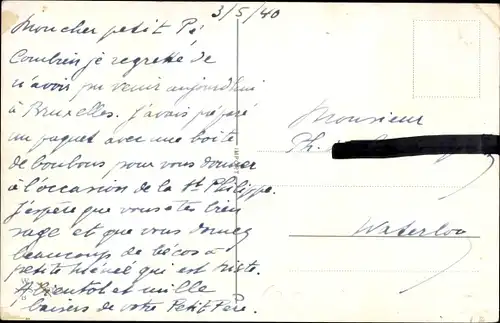 3/5/40
Mon cher petit Pé
Combien je regrette de
n'avoir pu venir aujourd'hui
à Bruxelles. J'avais préparé
un paquet avec une boîte
de bonbons pour vous donner
à l'occasion de la St Philippe.
J'espère que vous êtes bien
sage et que vous donnez
beaucoup de bécos à
petite Mémé qui est triste.
A bientôt et mille
baisers de votre Petit Père.
Monsieur
Ph.
Waterloo